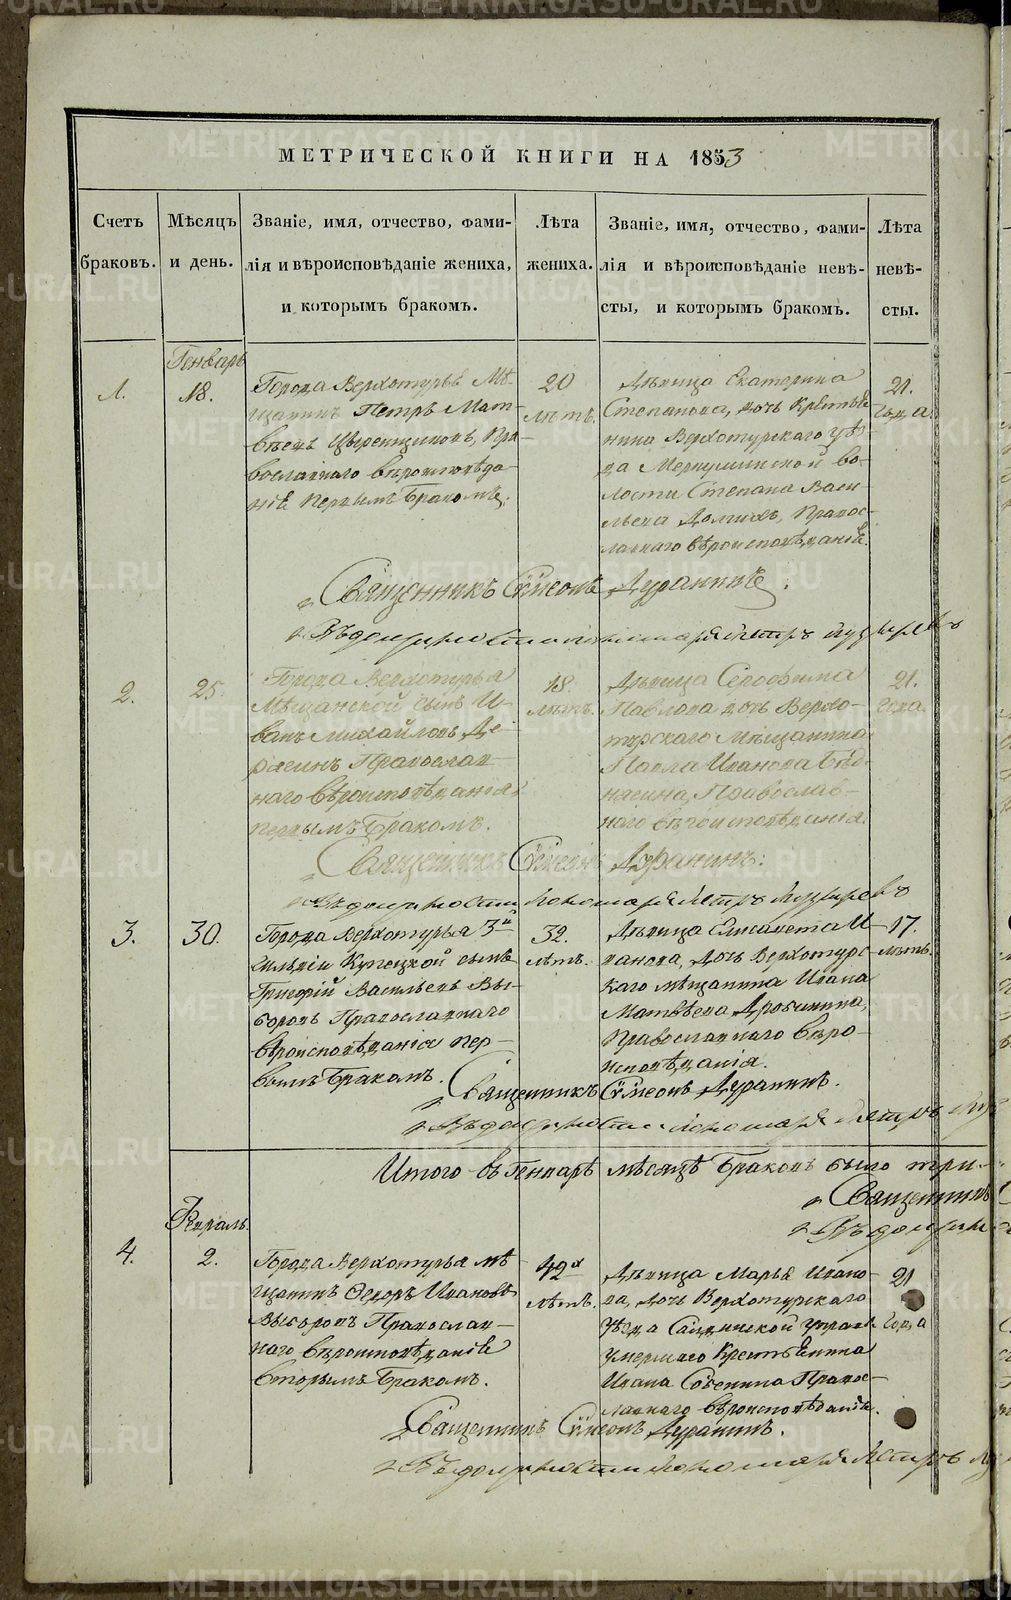 METRIKI.GASO-URAL.RU
МЕТРИЧЕСКОЙ КНИГИ НА 1853
Счетъ браковъ.
Мѣсяцъ и день.
Званіе, имя, отчество, фами-
лія и вѣроисповѣданіе жениха,
и которымъ бракомъ.
Лѣта жениха.
Званіе, имя, отчество, фами-
лія и вѣроисповѣданіе невѣ-
сты, и которымъ бракомъ.
Лѣта невѣ-
сты.
Генварь
1.
18.
Города Верхотурья Мѣ-
щанинъ Петръ Мат-
вѣевъ Пра-
вославнаго вѣроисповѣда-
нія первымъ бракомъ.
20
лѣтъ.
Дѣвица Екатерина
Степанова, дочь Крестья-
нина Верхотурскаго уѣз-
да Меркушинской во-
лости Степана Васи-
льева Правос-
лавнаго вѣроисповѣданія.
21.
года.
Священникъ Сѵмеонъ Дуранинъ.
Въ должности пономаря Петръ
2.
25.
Города Верхотурья
Мѣщанской сынъ И-
ванъ Михайловъ Де-
рягинъ Православ-
наго вѣроисповѣданія
первымъ бракомъ.
18.
лѣтъ.
Дѣвица Серафима
Павлова дочь Верхо-
турскаго мѣщанина
Павла Иванова
Православ-
наго вѣроисповѣданія.
21.
года
Священникъ Сѵмеонъ Дуранинъ.
Въ должности пономаря Петръ
3.
30.
Города Верхотурья 3й
гильдіи Купецкой сынъ
Григорій Васильевъ Вы-
боровъ Православнаго
вѣроисповѣданія пер-
вымъ бракомъ.
32.
лѣтъ.
Дѣвица Елисавета И-
ванова, дочь Верхотурс-
каго мѣщанина Ивана
Матвѣева Дробинина,
Православнаго вѣро-
исповѣданія.
17.
лѣтъ.
Священникъ Сѵмеонъ Дуранинъ.
Въ должности пономаря Петръ
Итого въ Генварѣ мѣсяцѣ браковъ было три.
Священникъ
Въ должн
Февраль.
4.
2.
Города Верхотурья мѣ-
щанинъ Ѳедоръ Ивановъ
Выборовъ Православ-
наго вѣроисповѣданія
вторымъ бракомъ.
42х
лѣтъ.
Дѣвица Марья Ивано-
ва, дочь Верхотурскаго
уѣзда Салдинской
умершаго Крестьянина
Ивана Правос-
лавнаго вѣроисповѣданія.
21
года
Священникъ Сѵмеонъ Дуранинъ.
Въ должности пономаря Петръ